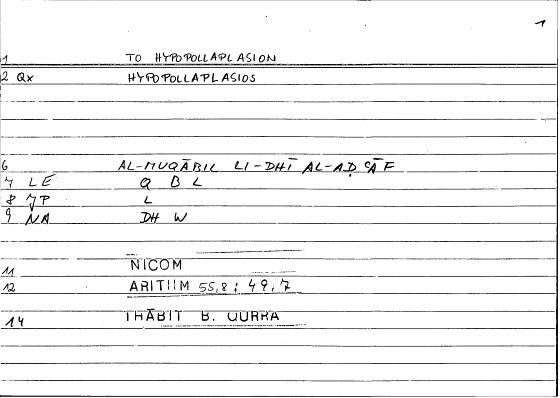 1
1 TO HYPOPOLLAPLASION
2 Qx HYPOPOLLAPLASIOS
6 AL-MUQĀBIL LI-DHĪ AL-AḌʿĀF
7 LE Q B L
8 JP L
9 NA DH W
11 NICOM
12 ARITIIM 55,8 : 49,7
14 THĀBIT B. QURRA